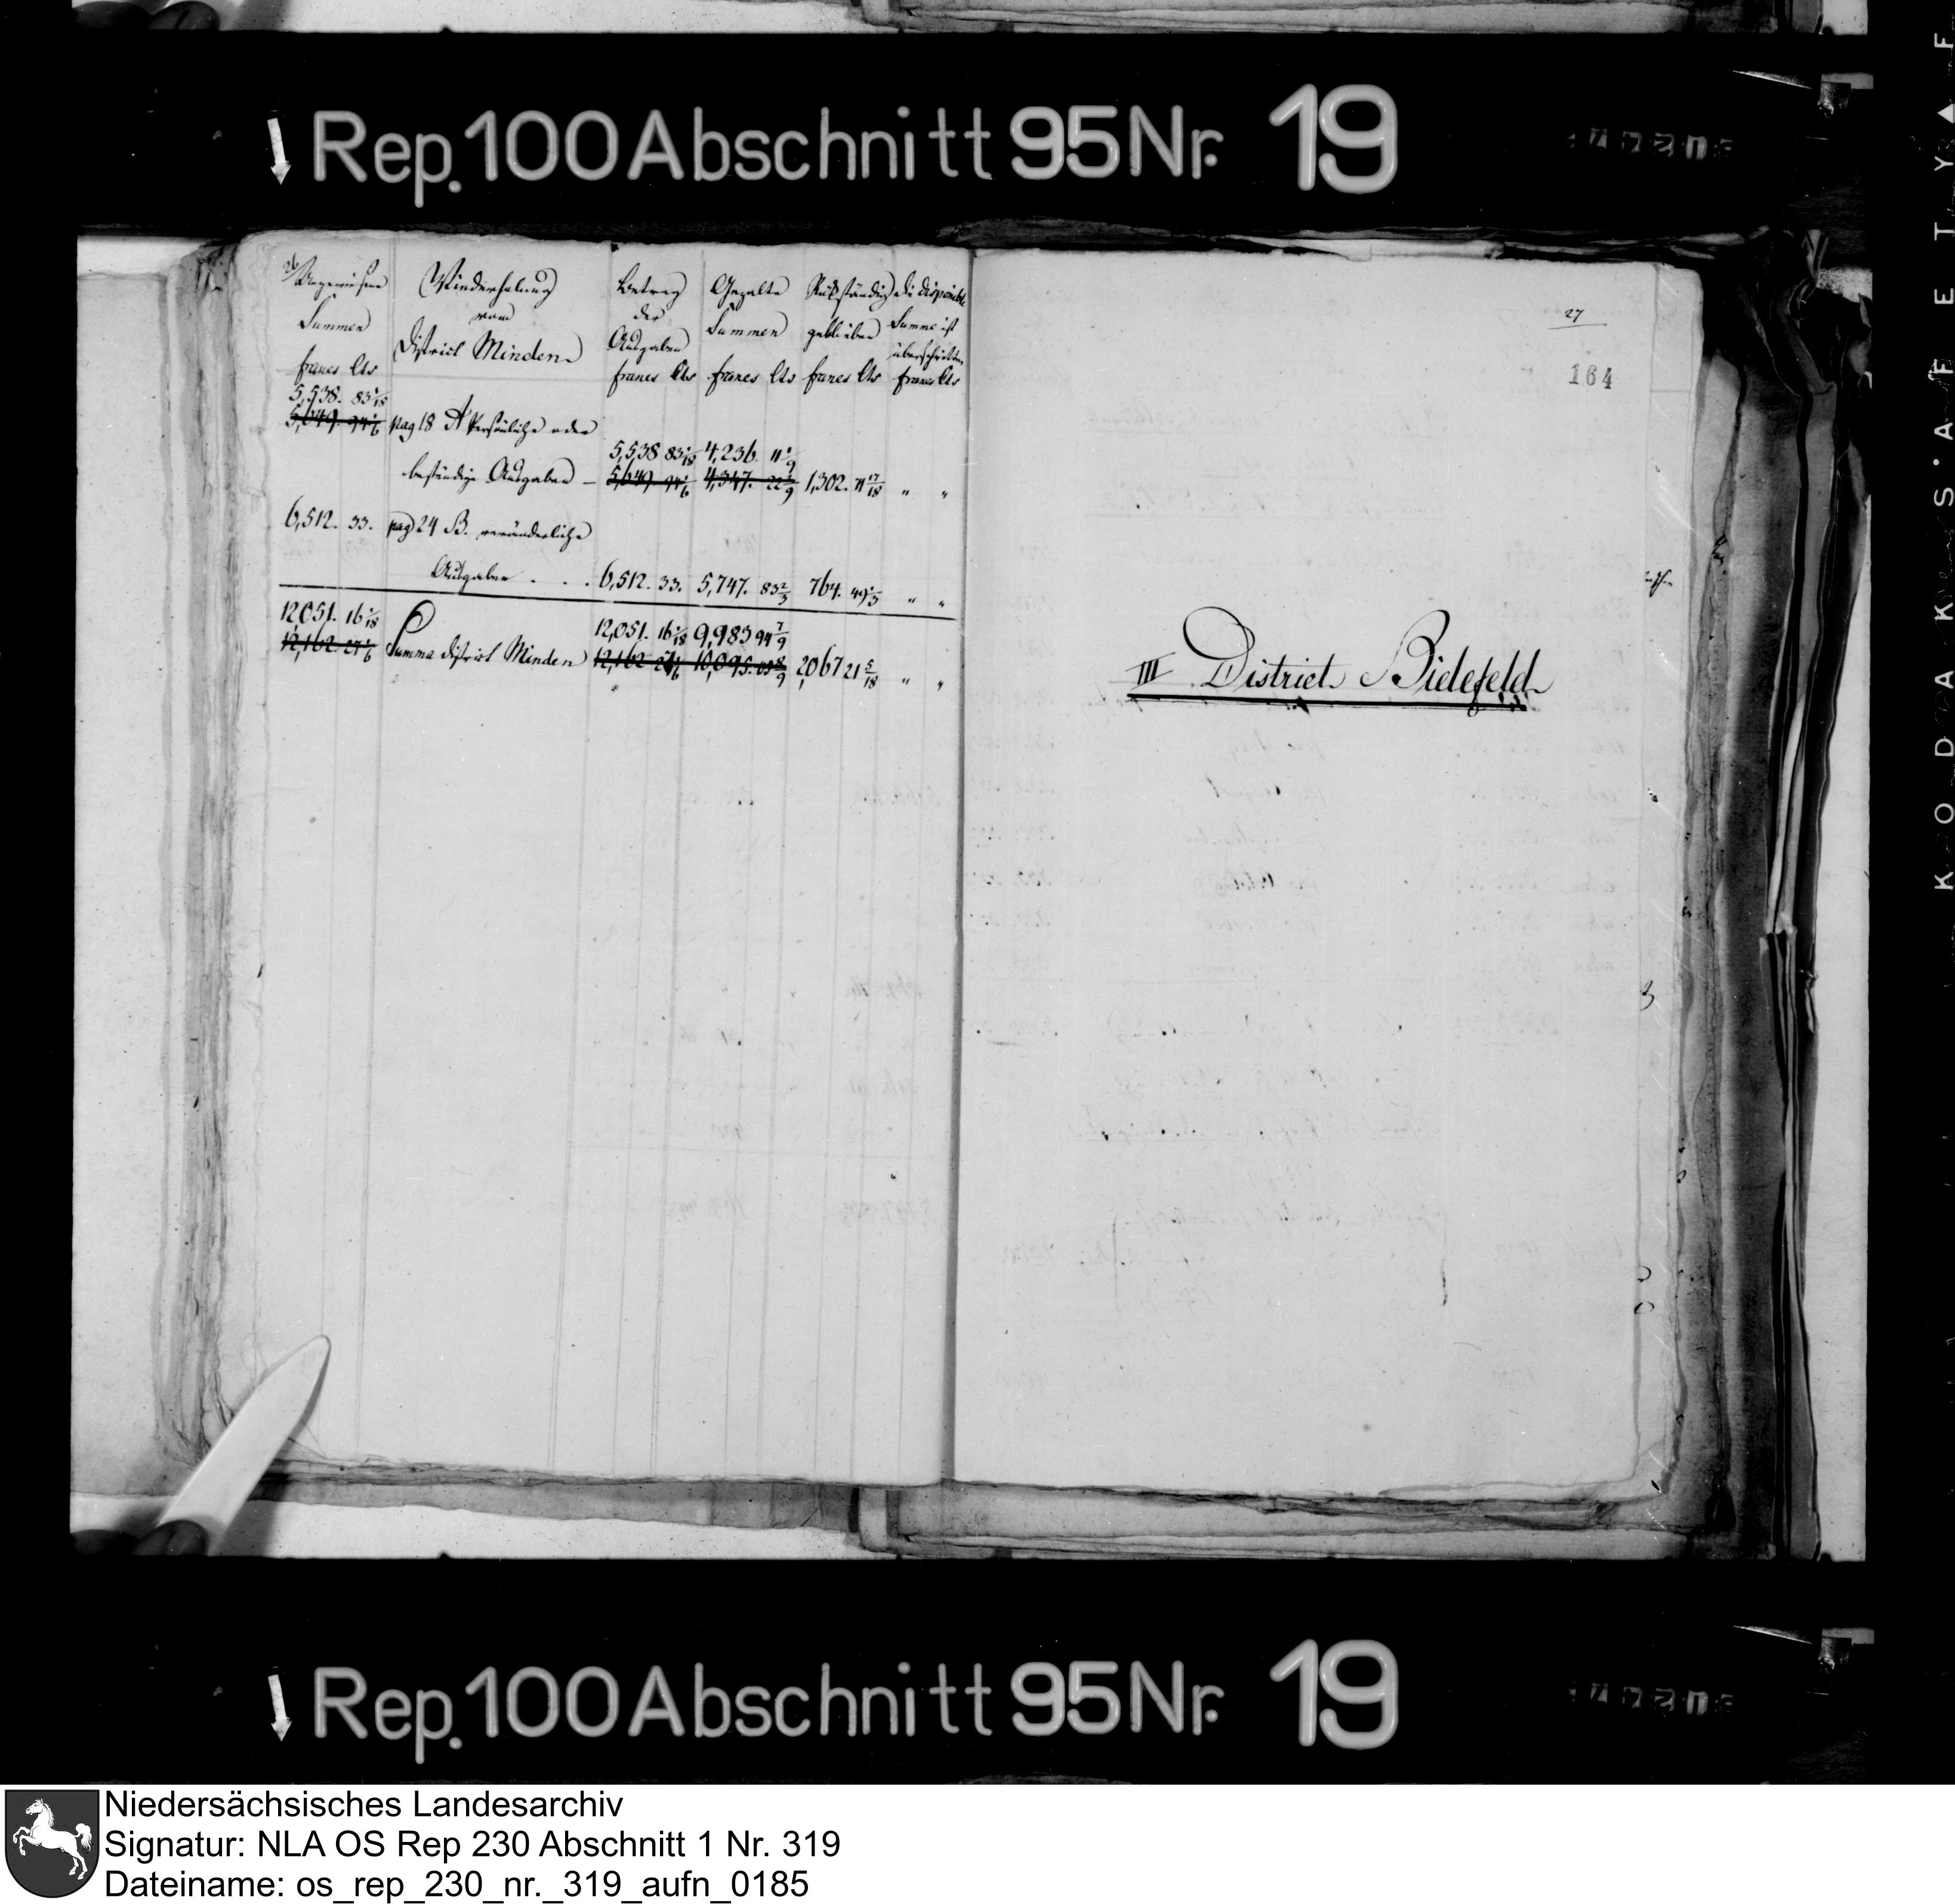 Rep. 100 Abschnitt 95 Nr. 19
26
Angewiesene
Summen
francs Cts
Wiederholung
vom
District Minden
Betrag
der
Ausgaben
francs Cts
Gezalte
Summen
francs Cts
Rükständig
geblieben
francs Cts
die disponible
Summe ist
überschritten
francs Cts
5,538. 83 1/18
5,649. 94 1/6 pag 18 A Persönliche oder
5,538 83 1/18 4,236. 11 1/9
beständige Ausgaben – 5,649. 94 1/6 4,347. 22 2/9 1,302. 71 17/18 " "
6,512. 33. pag 24 B. veränderliche
Ausgaben . . . 6,512. 33. 5,747. 83 2/3 764. 49 1/3 " "
12,051. 16 1/18 12,051. 16 1/18 9,983 94 7/9
12,162. 27 1/6 Summa district Minden 12,162 27 1/6 10,095. 05 8/9 2,067 21 5/18 " "
27
164
III District Bielefeld
Rep. 100 Abschnitt 95 Nr. 19
KODAK SAFETY F
Niedersächsisches Landesarchiv
Signatur: NLA OS Rep 230 Abschnitt 1 Nr. 319
Dateiname: os_rep_230_nr._319_aufn_0185